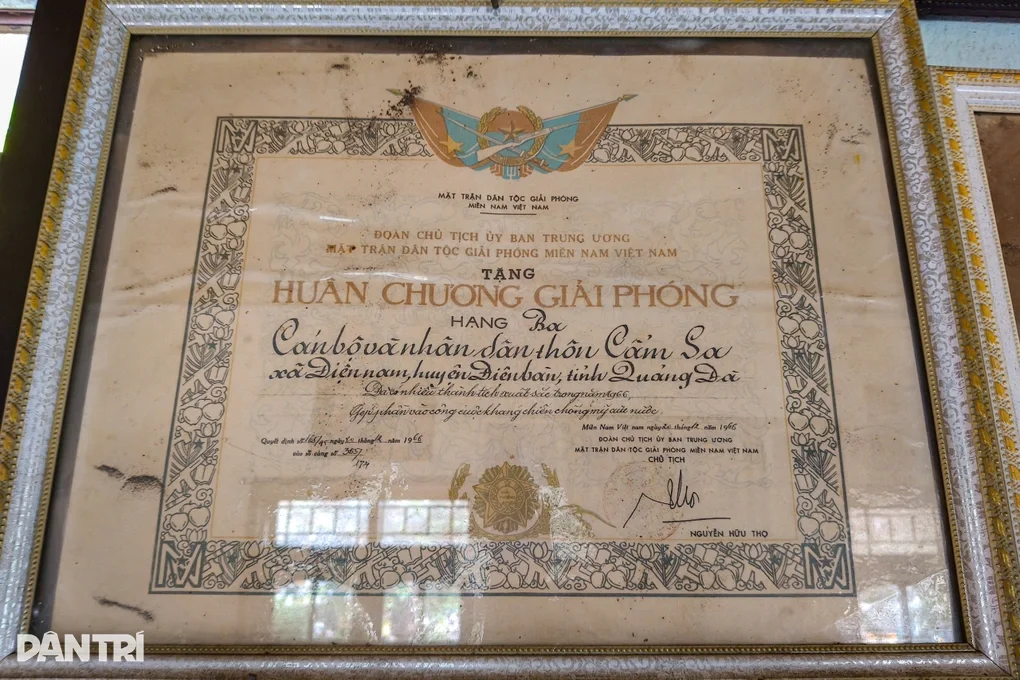 MẶT TRẬN DÂN TỘC GIẢI PHÓNG
MIỀN NAM VIỆT NAM
ĐOÀN CHỦ TỊCH ỦY BAN TRUNG ƯƠNG
MẶT TRẬN DÂN TỘC GIẢI PHÓNG MIỀN NAM VIỆT NAM
TẶNG
HUÂN CHƯƠNG GIẢI PHÓNG
HẠNG Ba
Cán bộ và nhân dân thôn Cẩm Sa
xã Điện nam, huyện Điện bàn, tỉnh Quảng Đà
Đã có nhiều thành tích xuất sắc trong năm 1966,
Góp phần vào công cuộc kháng chiến chống mỹ cứu nước.
Miền Nam Việt nam ngày tháng năm 1966
Quyết định số ngày tháng năm 1966
vào sổ vàng số 3657
174
ĐOÀN CHỦ TỊCH ỦY BAN TRUNG ƯƠNG
MẶT TRẬN DÂN TỘC GIẢI PHÓNG MIỀN NAM VIỆT NAM
CHỦ TỊCH
NGUYỄN HỮU THỌ
DÂN TRÍ